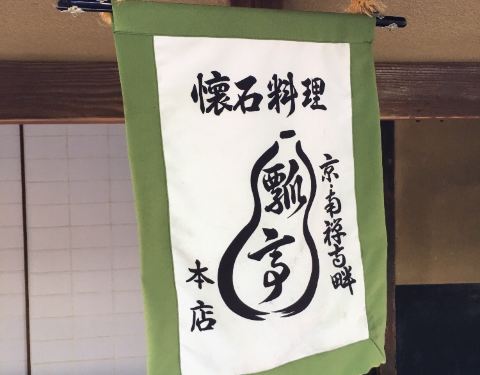 懐石料理
京・南禅寺畔
瓢亭
本店